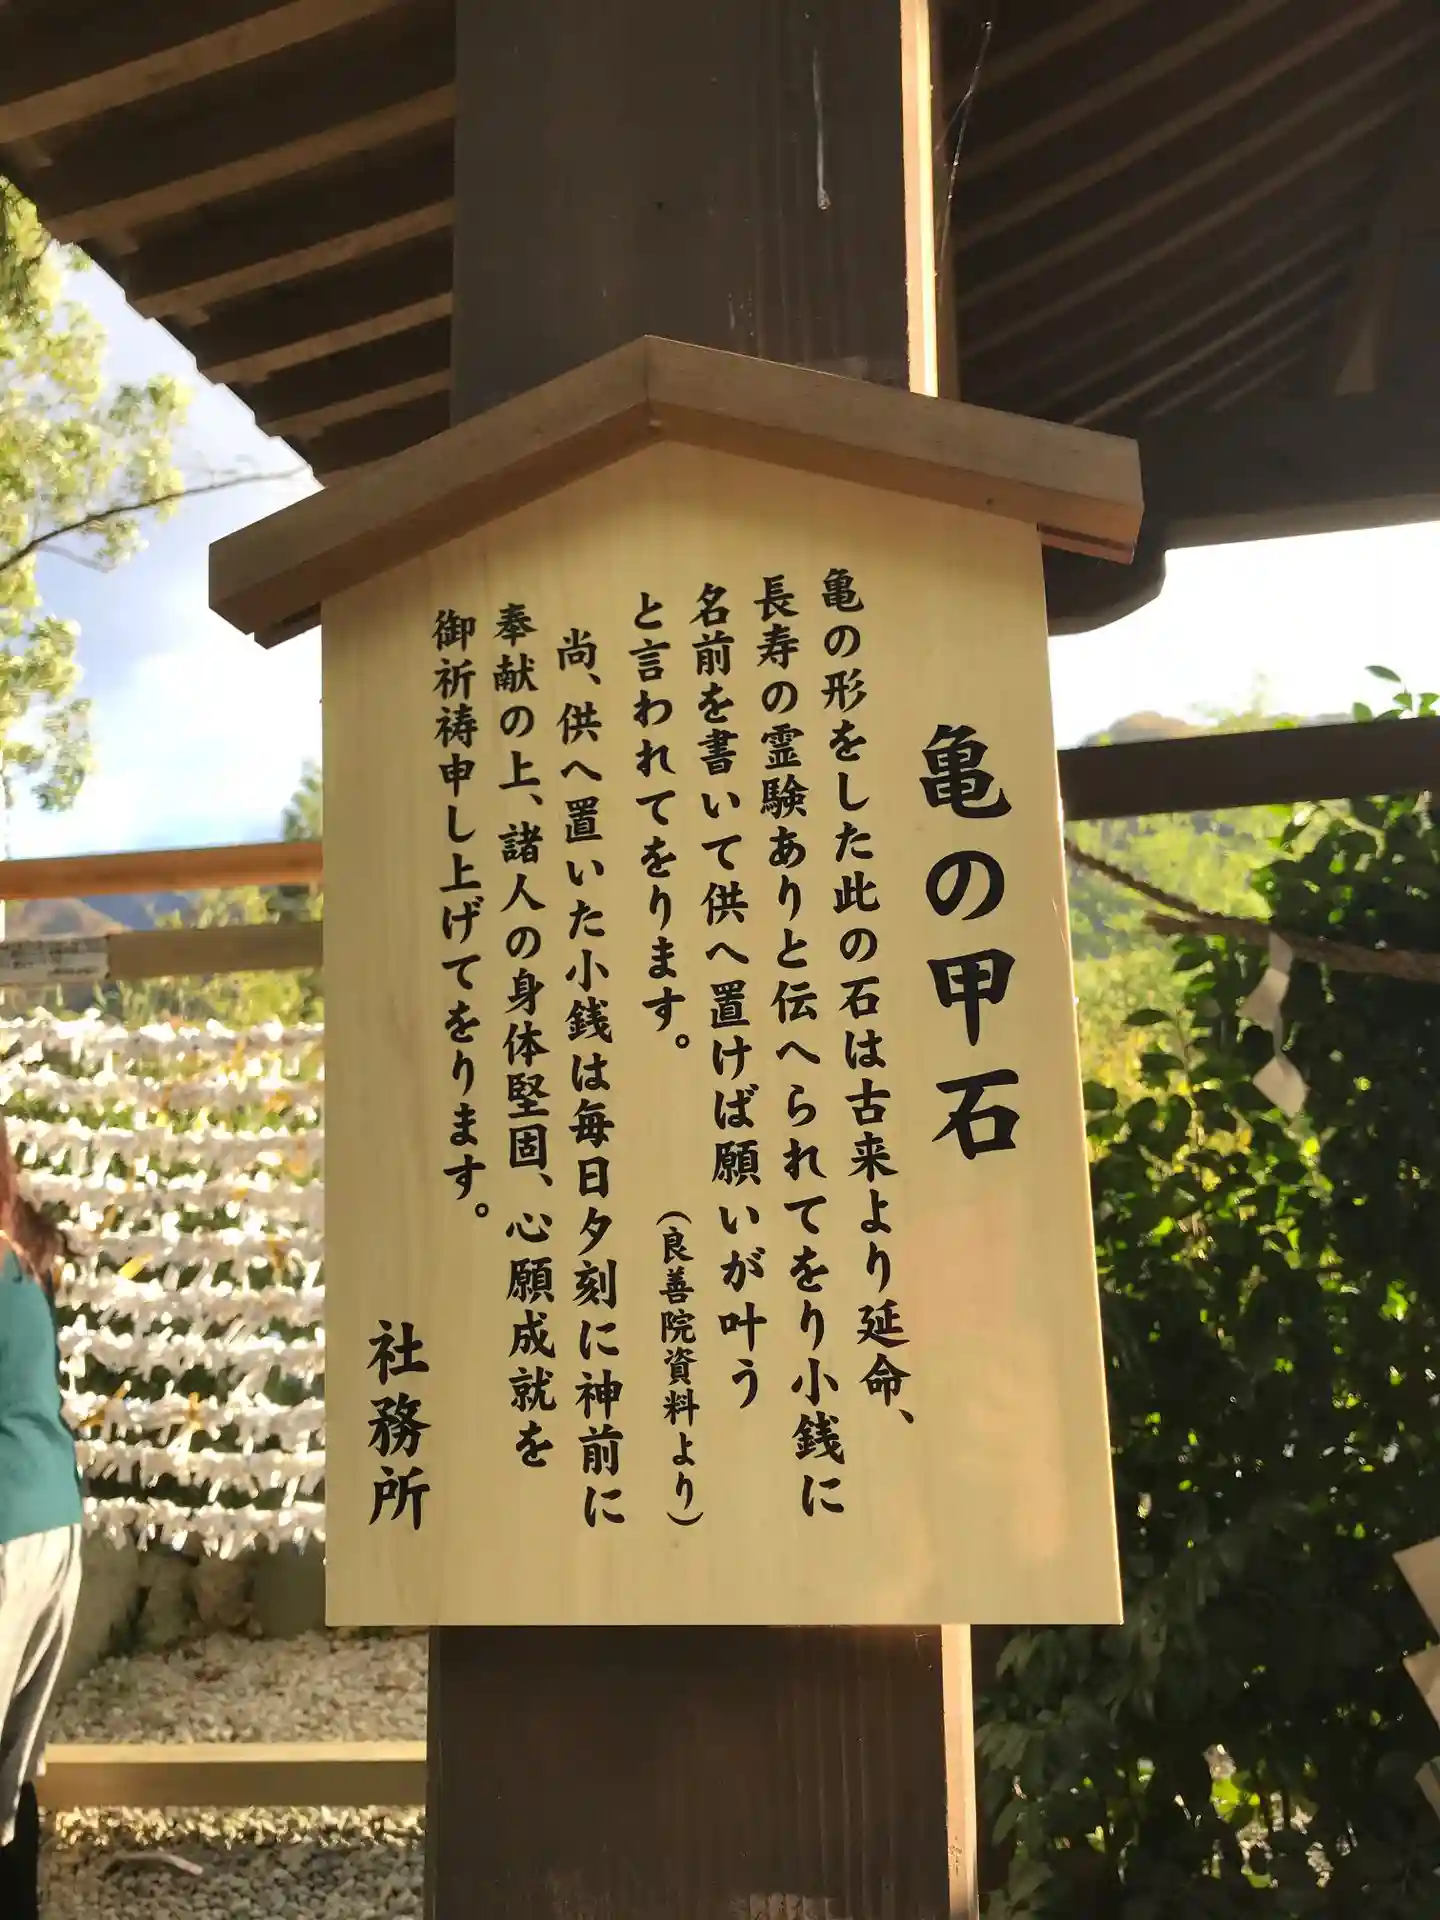 亀の甲石
亀の形をした此の石は古来より延命、
長寿の霊験ありと伝へられてをり小銭に
名前を書いて供へ置けば願いが叶う
と言われてをります。
(良善院資料より)
尚、供へ置いた小銭は毎日夕刻に神前に
奉献の上、諸人の身体堅固、心願成就を
御祈祷申し上げてをります。
社務所